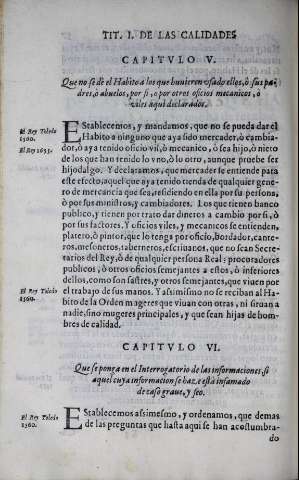 TIT. I. DE LAS CALIDADES
CAPITVLO V.
Que no se dè el Habito a los que huuieren vsado ellos, ò sus pa-
dres, o abuelos, por si, o por otros oficios mecanicos, ò
viles aqui declarados.
El Rey Toledo
1560.
El Rey 1653.
Establecemos, y mandamos, que no se pueda dar el
Habito a ninguno que aya sido mercader, ò cambia-
dor, ò aya tenido oficio vil, ò mecanico, ò sea hijo, ò nieto
de los que han tenido lo vno, ò lo otro, aunque pruebe ser
hijodalgo. Y declaramos, que mercader se entiende para
este efecto, aquel que aya tenido tienda de qualquier gene-
ro de mercancia que sea, residiendo en ella por su persona,
ò por sus ministros, y cambiadores. Los que tienen banco
publico, y tienen por trato dar dineros a cambio por si, ò
por sus factores. Y oficios viles, y mecanicos se entienden,
platero, ò pintor, que lo tenga por oficio, bordador, cante-
ros, mesoneros, taberneros, escriuanos, que no sean Secre-
tarios del Rey, ò de qualquier persona Real: procuradores
publicos, ò otros oficios semejantes a estos, ò inferiores
dellos, como son sastres, y otros semejantes, que viuen por
el trabajo de sus manos. Y assimismo no se reciban al Ha-
El Rey Toledo
1560.
bito de la Orden mugeres que viuan con otras, ni siruan a
nadie, sino mugeres principales, y que sean hijas de hom-
bres de calidad.
CAPITVLO VI.
Que se ponga en el Interrogatorio de las informaciones, si
aquel cuya informacion se haze està infamado
de caso graue, y feo.
El Rey Toledo
1560.
Establecemos assimesmo, y ordenamos, que demas
de las preguntas que hasta aqui se han acostumbra-
do